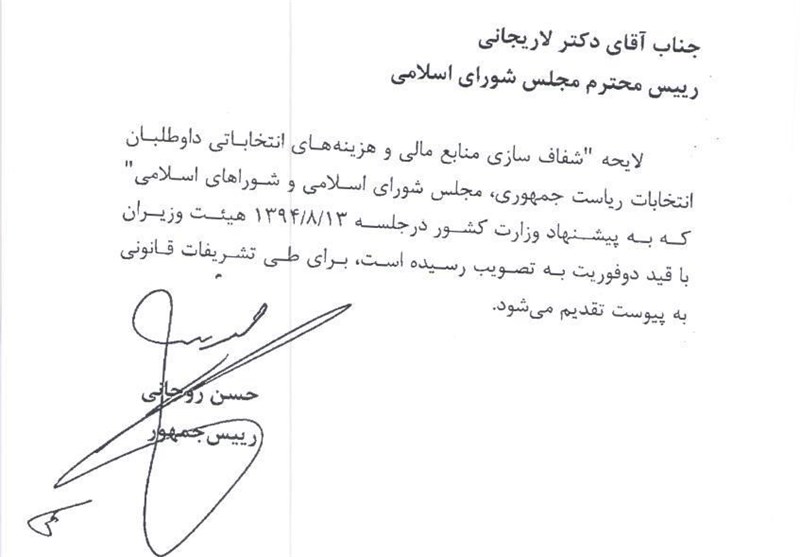 جناب آقای دکتر لاریجانی
رییس محترم مجلس شورای اسلامی
لایحه "شفاف سازی منابع مالی و هزینه‌های انتخاباتی داوطلبان
انتخابات ریاست جمهوری، مجلس شورای اسلامی و شوراهای اسلامی"
که به پیشنهاد وزارت کشور درجلسه ۱۳۹۴/۸/۱۳ هیئت وزیران
با قید دوفوریت به تصویب رسیده است، برای طی تشریفات قانونی
به پیوست تقدیم می‌شود.
حسن روحانی
رییس‌جمهور